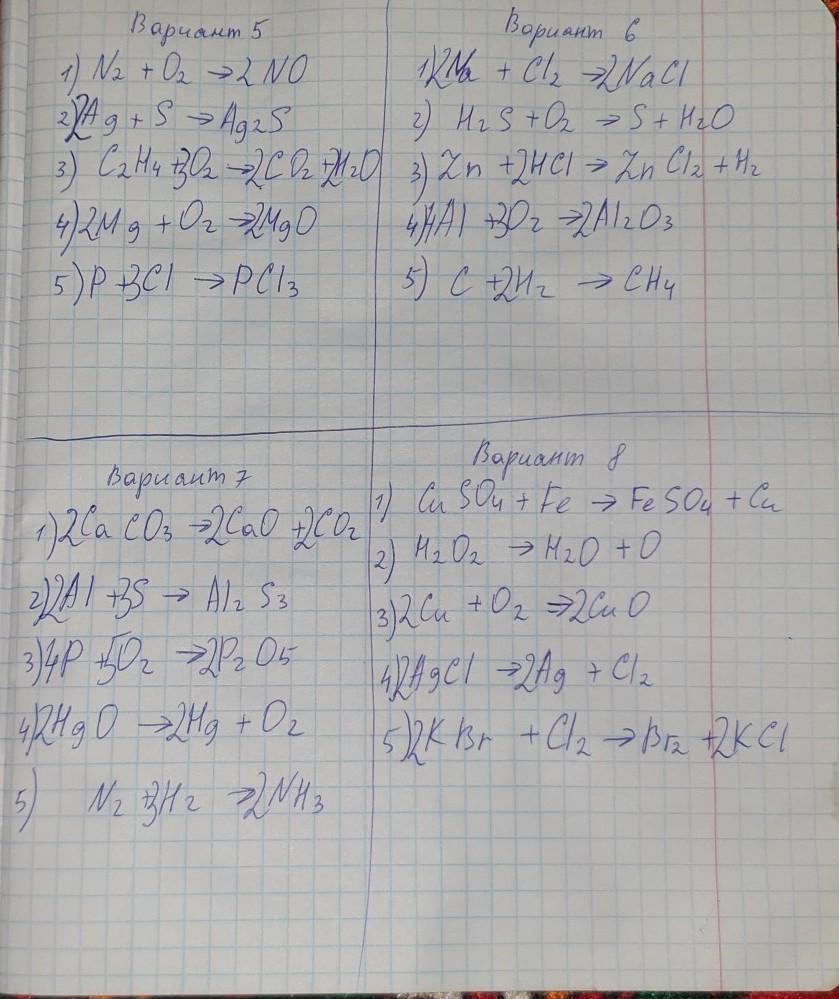 Вариант 5
1) N2 + O2 → 2NO
2) 2Ag + S → Ag2S
3) C2H4 + 3O2 → 2CO2 + 2H2O
4) 2Mg + O2 → 2MgO
5) P + 3Cl → PCl3
Вариант 6
1) 2Na + Cl2 → 2NaCl
2) H2S + O2 → S + H2O
3) Zn + 2HCl → ZnCl2 + H2
4) 4Al + 3O2 → 2Al2O3
5) C + 2H2 → CH4
Вариант 7
1) 2CaCO3 → 2CaO + 2CO2
2) 2Al + 3S → Al2S3
3) 4P + 5O2 → 2P2O5
4) 2HgO → 2Hg + O2
5) N2 + 3H2 → 2NH3
Вариант 8
1) CuSO4 + Fe → FeSO4 + Cu
2) H2O2 → H2O + O
3) 2Cu + O2 → 2CuO
4) 2AgCl → 2Ag + Cl2
5) 2KBr + Cl2 → Br2 + 2KCl